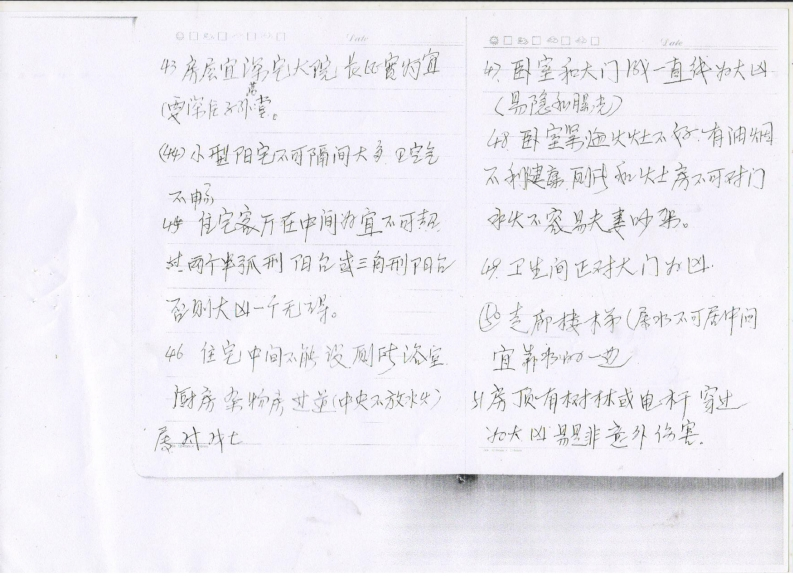 43 房屋宜深宅大院 长比宽为宜
(44) 小型阳宅不可隔间太多 空气
不畅
45 住宅客厅在中间为宜不可超
过两个半弧形 阳台或三角形阳台
否则大凶一个无碍。
46 住宅中间不能设厕所浴室
厨房杂物房 (中央不放水火)
47. 卧室和大门成一直线为大凶
(易隐私曝光)
48 卧室紧临火灶不好 有油烟
不利健康 厕所和灶房不可对门
水火不容易夫妻吵架。
49. 卫生间正对大门为凶.
(50) 走廊楼梯 不可居中间
宜靠 的一边
51 房顶有树林或电杆
为大凶 易是非意外伤害.